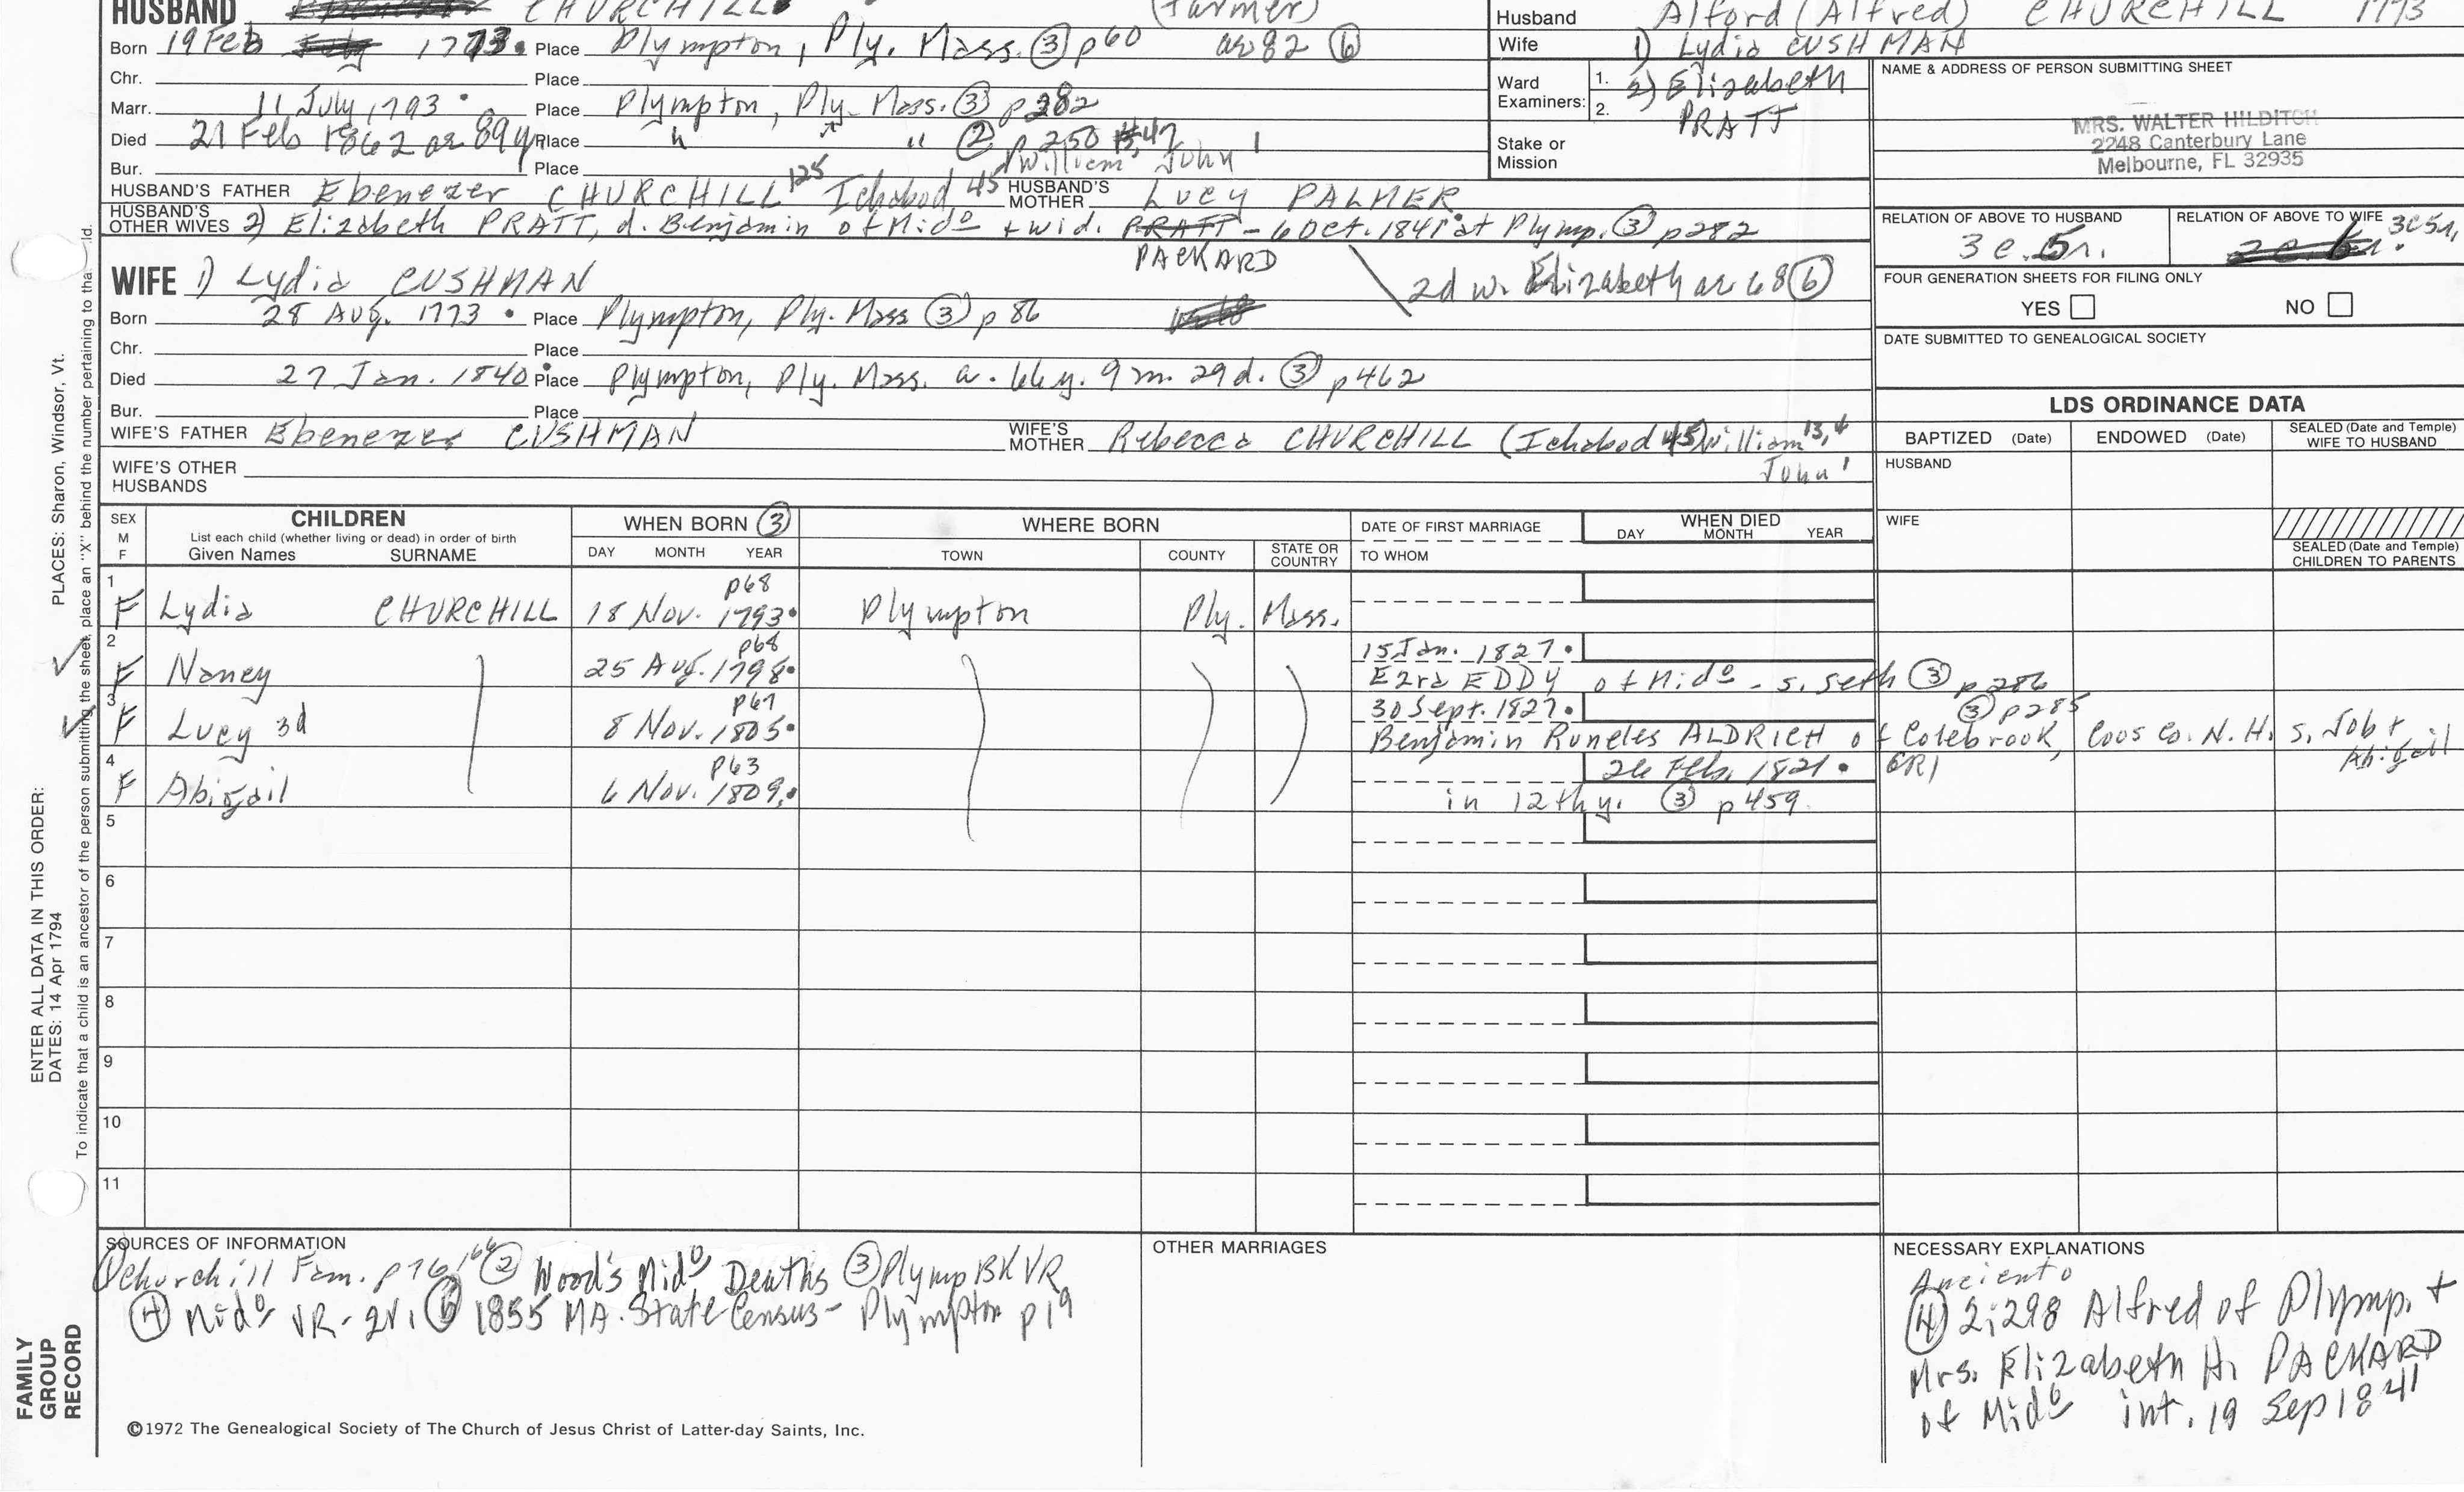 HUSBAND CHURCHILL (Farmer)
Husband Alford (Alfred) CHURCHILL 1773
Born 19 Feb 1773. Place Plympton, Ply. Mass. ③ p60 ae 82 ⑥
Wife 1) Lydia CUSHMAN
Chr. Place
Ward Examiners: 1. 2) Elizabeth
2. PRATT
NAME & ADDRESS OF PERSON SUBMITTING SHEET
Marr. 11 July, 1793. Place Plympton, Ply. Mass. ③ p282
MRS. WALTER HILDITCH
2248 Canterbury Lane
Melbourne, FL 32935
Died 21 Feb 1862 ae 89y Place " " ② p250 #47
Stake or Mission
Bur. Place William John 1
HUSBAND'S FATHER Ebenezer CHURCHILL 125 Ichabod, 45 HUSBAND'S MOTHER Lucy PALMER
HUSBAND'S OTHER WIVES 2) Elizabeth PRATT, d. Benjamin of Mido + wid. PRATT - 6 Oct. 1841 at Plymp. ③ p282
PACKARD
RELATION OF ABOVE TO HUSBAND
3c.5r.
RELATION OF ABOVE TO WIFE 3c5r.
2d w. Elizabeth ae 68 ⑥
FOUR GENERATION SHEETS FOR FILING ONLY
YES NO
WIFE 1) Lydia CUSHMAN
Born 28 Aug. 1773. Place Plympton, Ply. Mass ③ p 86
DATE SUBMITTED TO GENEALOGICAL SOCIETY
Chr. Place
Died 27 Jan. 1840. Place Plympton, Ply. Mass. a. 66y. 9m. 29d. ③ p462
Bur. Place
WIFE'S FATHER Ebenezer CUSHMAN WIFE'S MOTHER Rebecca CHURCHILL (Ichabod 45) William 13,4
John 1
WIFE'S OTHER HUSBANDS
LDS ORDINANCE DATA
BAPTIZED (Date) ENDOWED (Date) SEALED (Date and Temple) WIFE TO HUSBAND
HUSBAND
WIFE
SEALED (Date and Temple) CHILDREN TO PARENTS
SEX M F CHILDREN
List each child (whether living or dead) in order of birth
Given Names SURNAME
WHEN BORN ③
DAY MONTH YEAR
WHERE BORN
TOWN COUNTY STATE OR COUNTRY
DATE OF FIRST MARRIAGE
TO WHOM
WHEN DIED
DAY MONTH YEAR
p68
1 F Lydia CHURCHILL 18 Nov. 1793. Plympton Ply. Mass.
p68 15 Jan. 1827.
2 F Nancy 25 Aug. 1798. Ezra EDDY of Mido - s. Seth ③ p286
p67 30 Sept. 1827. ③ p285
3 F Lucy 3d 8 Nov. 1805. Benjamin Runeles ALDRICH of Colebrook, Coos Co. N.H. s. Job + Abigail
p63 26 Feb. 1821. GR1
4 F Abigail 6 Nov. 1809. in 12th y. ③ p459.
5
6
7
8
9
10
11
SOURCES OF INFORMATION
① Churchill Fam. p76, 166 ② Wood's Mido Deaths ③ Plymp BK VR
④ Mido VR. 2V. ⑥ 1855 MA. State Census - Plympton p19
OTHER MARRIAGES
NECESSARY EXPLANATIONS
④ 2:298 Alfred of Plymp. +
Mrs. Elizabeth H. PACKARD
of Mido int. 19 Sep 1841
©1972 The Genealogical Society of The Church of Jesus Christ of Latter-day Saints, Inc.
FAMILY GROUP RECORD
ENTER ALL DATA IN THIS ORDER:
DATES: 14 Apr 1794
PLACES: Sharon, Windsor, Vt.
To indicate that a child is an ancestor of the person submitting the sheet, place an "X" behind the number pertaining to that